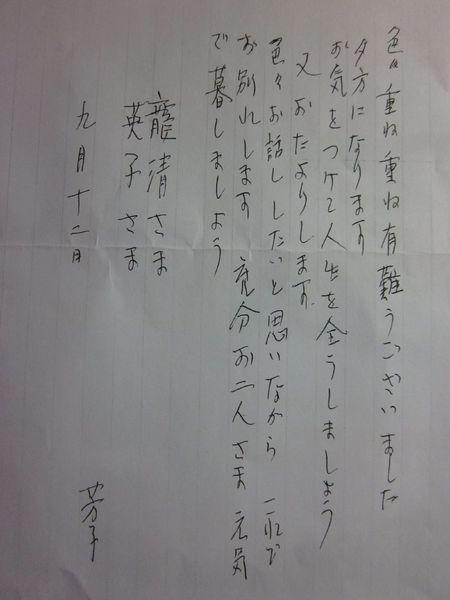 色々重ね重ね有難うございました
夕方になります
お気をつけて人生を全うしましょう
又おたよりします
色々お話ししたいと思いながら これで
お別れします 充分お二人さま元気
で暮しましょう
龍清さま
英子さま
九月十二日
芳子